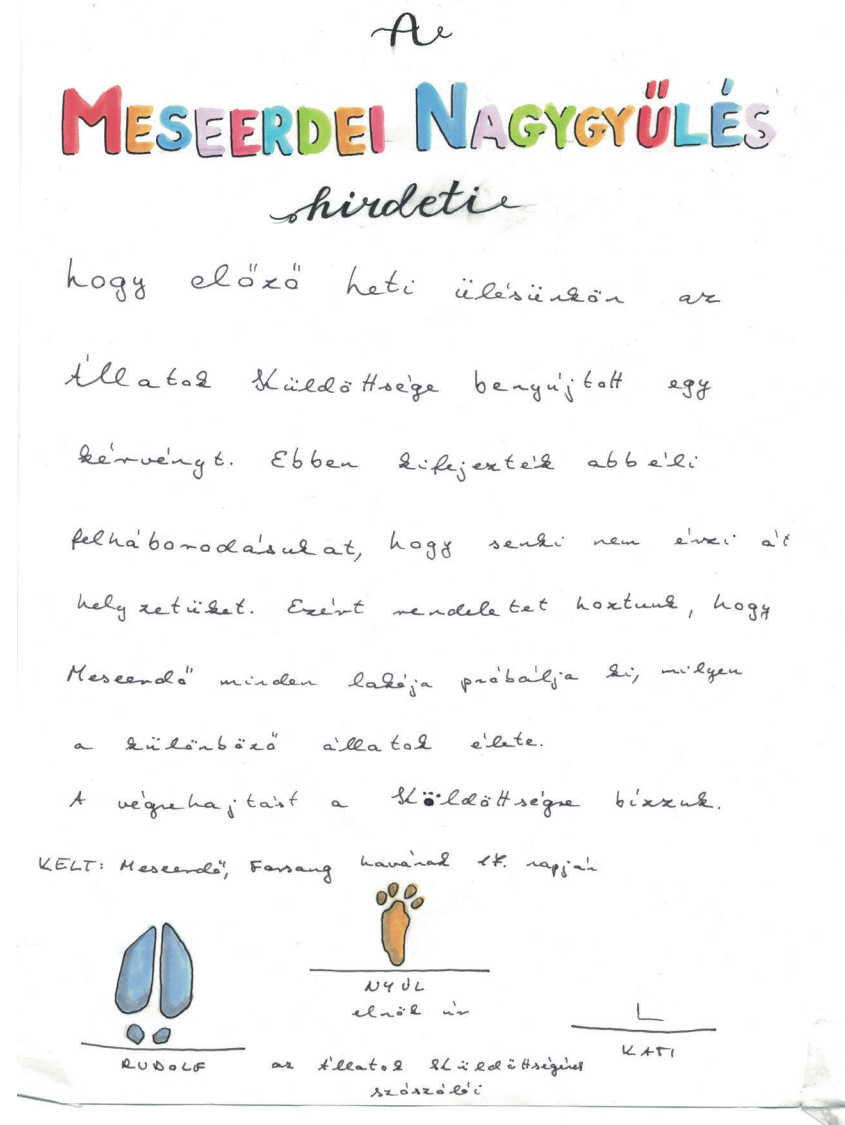 A
MESEERDEI NAGYGYŰLÉS
hirdeti
hogy előző heti ülésünkön az
Állatok Küldöttsége benyújtott egy
kérvényt. Ebben kifejezték abbéli
felháborodásukat, hogy senki nem érzi át
helyzetüket. Ezért rendeletet hoztunk, hogy
Meseerdő minden lakója próbálja ki, milyen
a különböző állatok élete.
A végrehajtást a Köldöttségre bízzuk.
KELT: Meseerdő, Farsang havának 17. napján
NYÚL
elnök úr
L
KATI
RUDOLF az Állatok Küldöttségének
szószólói